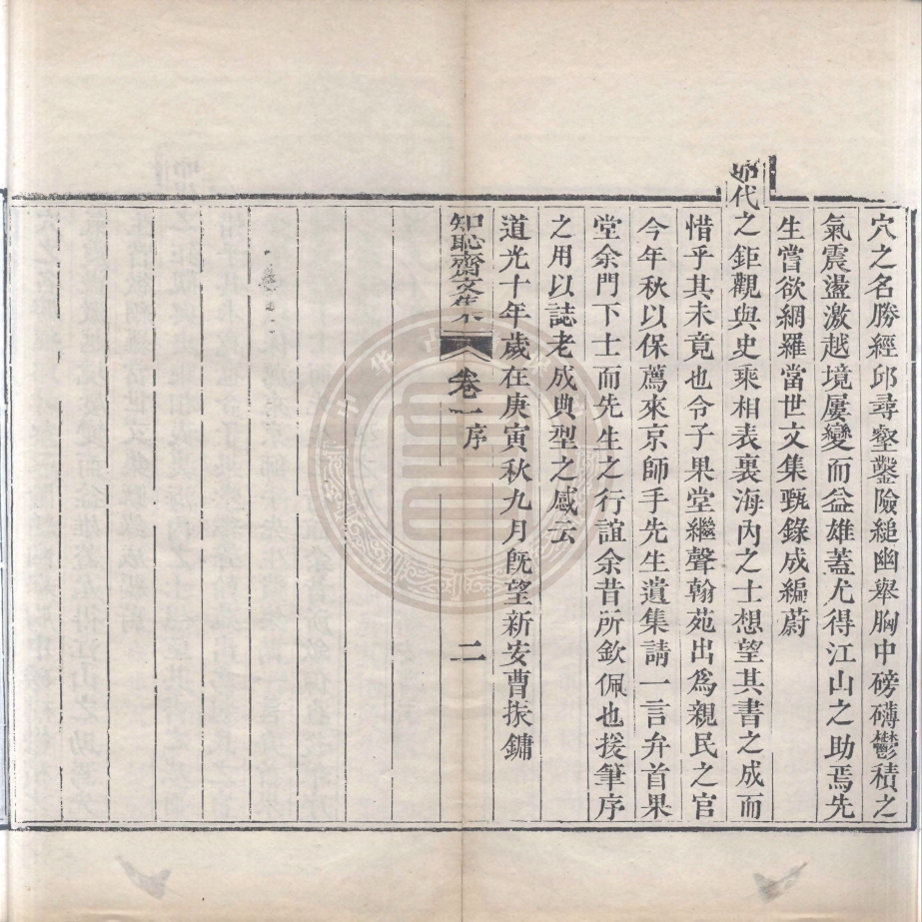 穴之名勝經邱尋壑鑿險縋幽舉胸中磅礴鬱積之
氣震盪激越境屢變而益雄蓋尤得江山之助焉先
生嘗欲網羅當世文集甄錄成編蔚
昭代之鉅觀與史乘相表裏海內之士想望其書之成而
惜乎其未竟也令子果堂繼聲翰苑出為親民之官
今年秋以保薦來京師手先生遺集請一言弁首果
堂余門下士而先生之行誼余昔所欽佩也援筆序
之用以誌老成典型之感云
道光十年歲在庚寅秋九月既望新安曹振鏞
知恥齋文集 卷一序 二